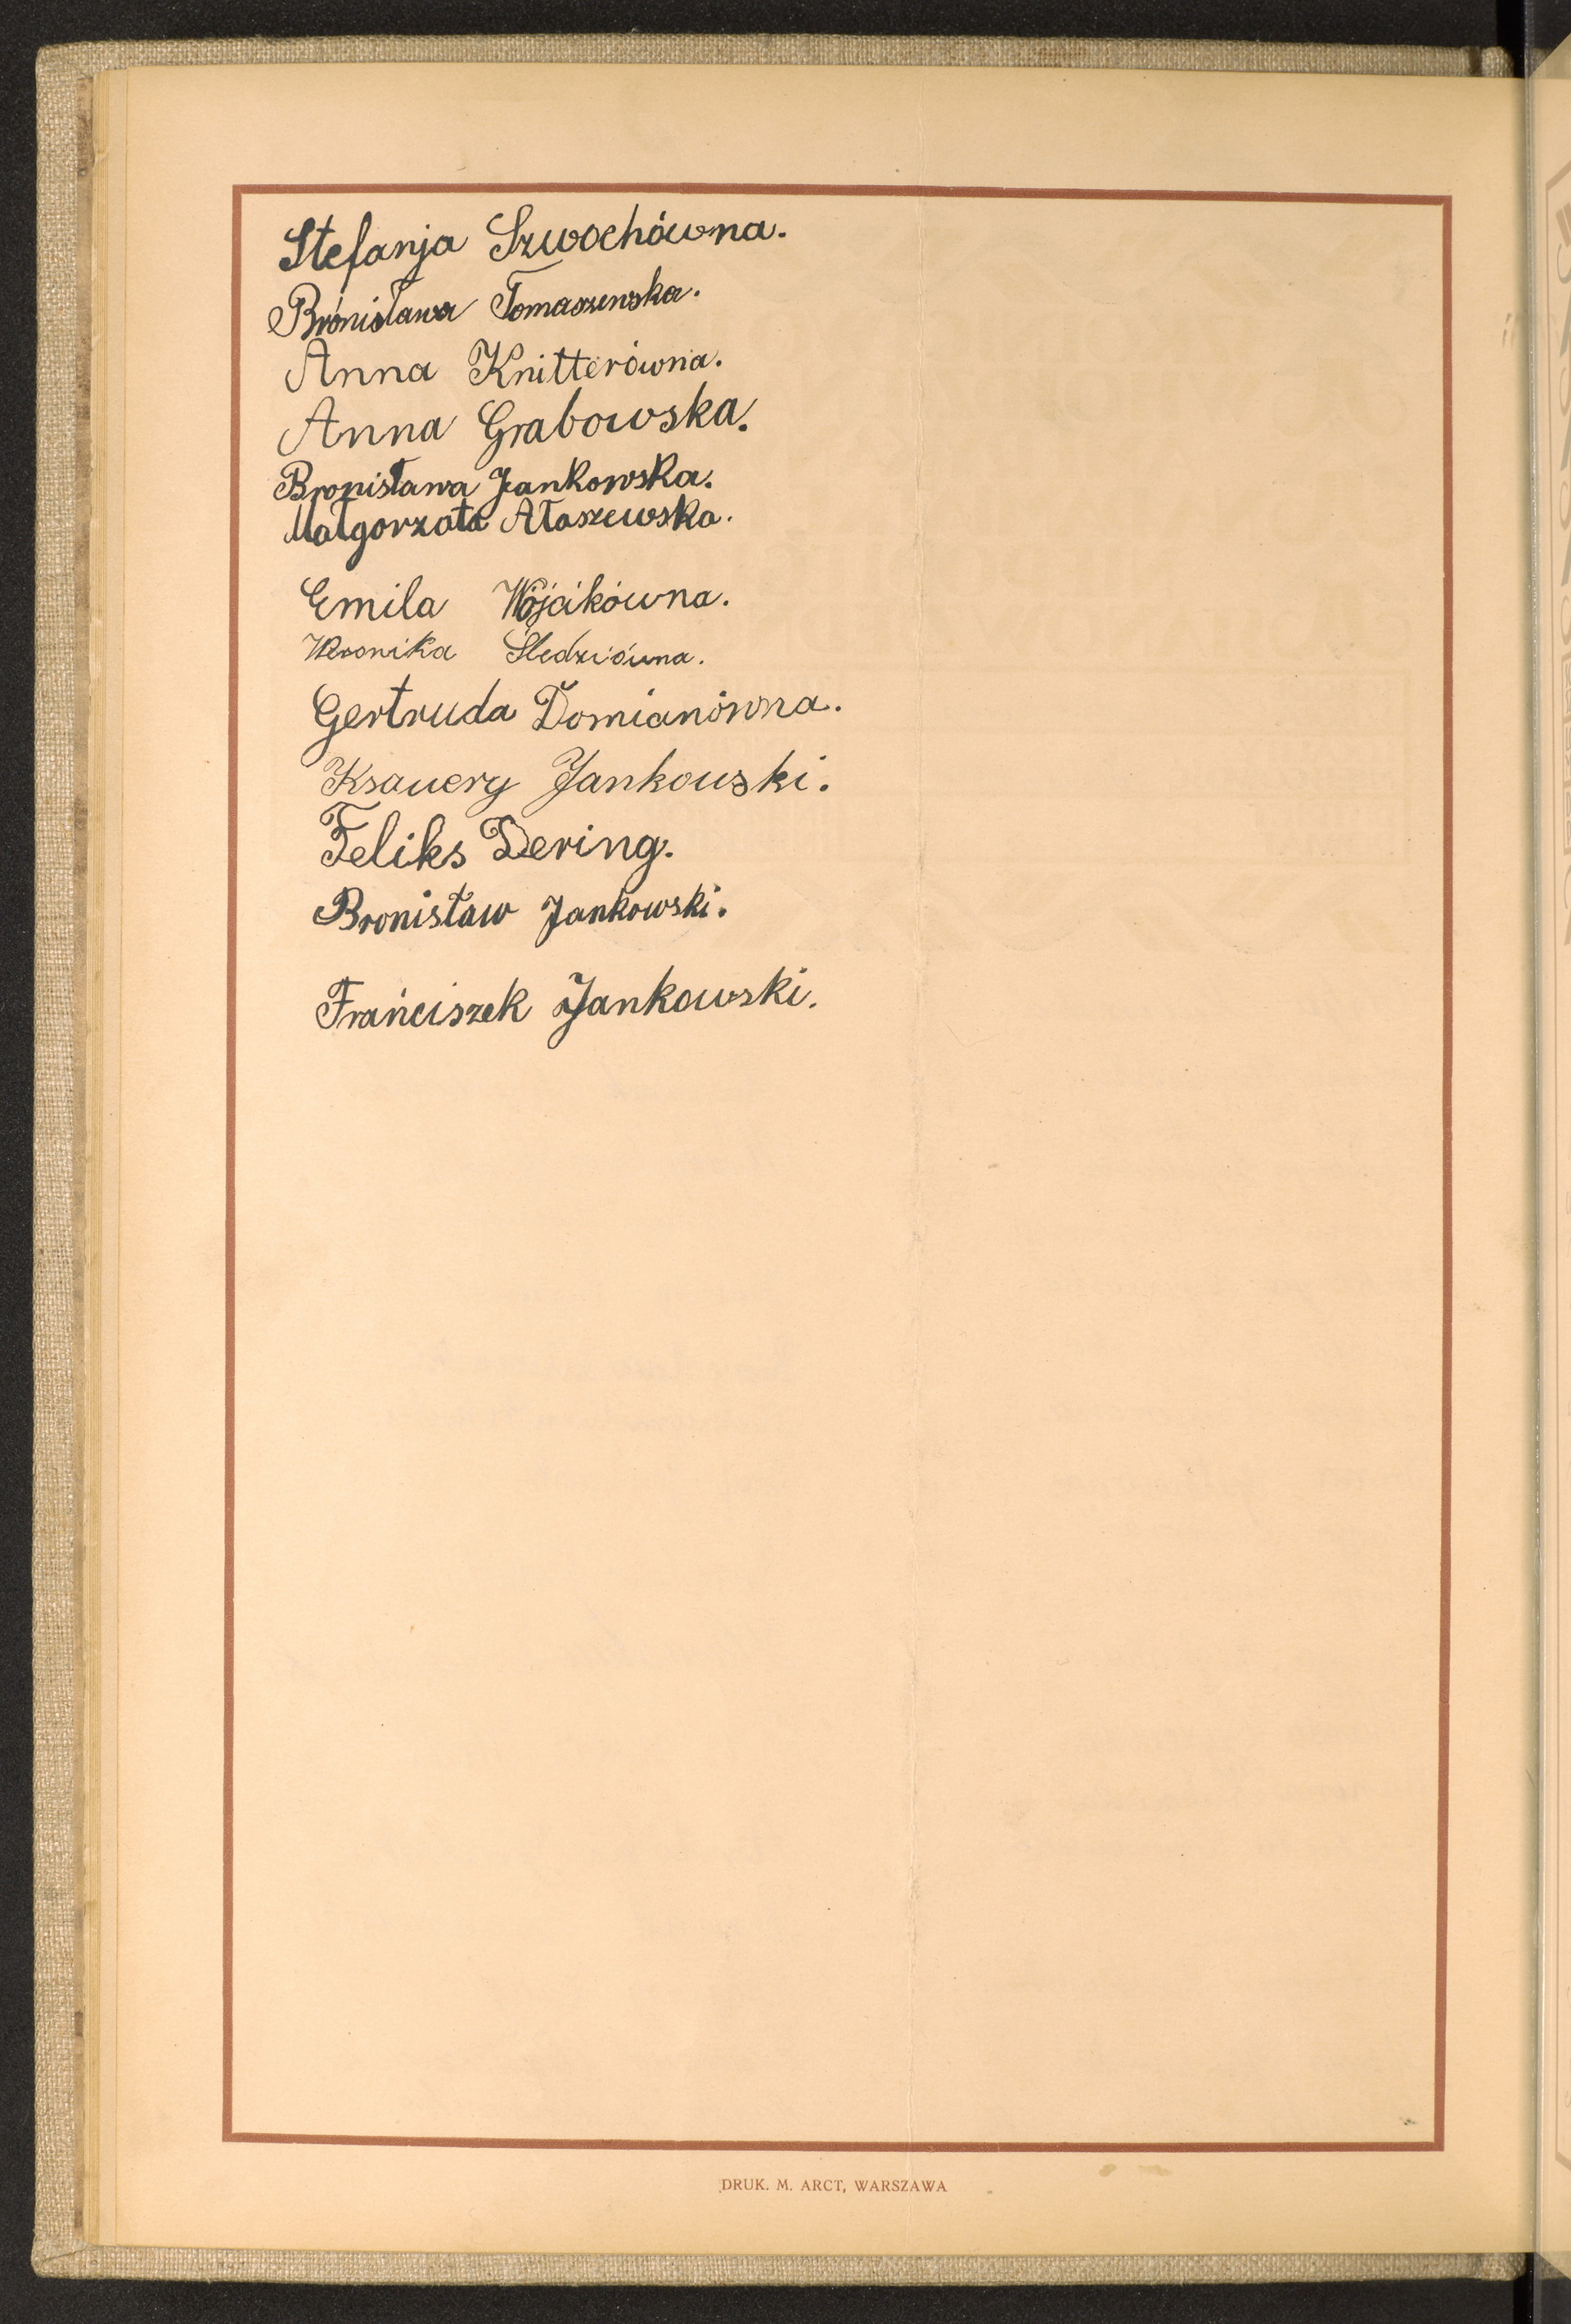 Stefanja Szwochówna.
Bronisława Tomaszewska.
Anna Knitterówna.
Anna Grabowska.
Bronisława Jankowska.
Małgorzata Ataszewska.
Emila Wójcikówna.
Weronika Śledziówna.
Gertruda Domianówna.
Ksawery Jankowski.
Feliks Dering.
Bronisław Jankowski.
Franciszek Jankowski.
DRUK. M. ARCT, WARSZAWA